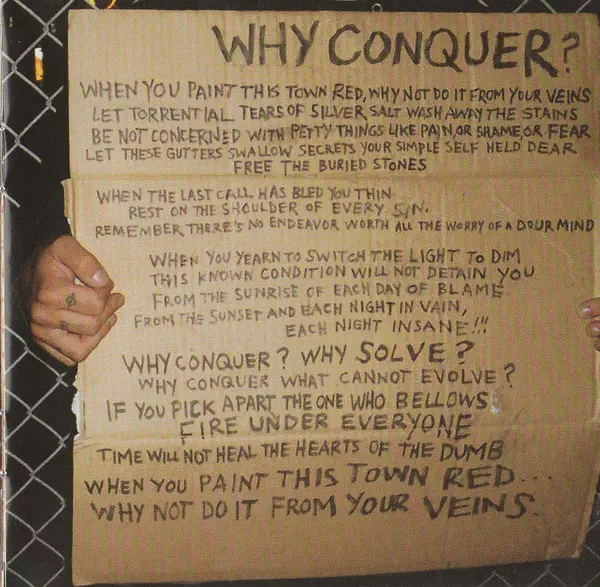 WHY CONQUER?
WHEN YOU PAINT THIS TOWN RED, WHY NOT DO IT FROM YOUR VEINS
LET TORRENTIAL TEARS OF SILVER SALT WASH AWAY THE STAINS
BE NOT CONCERNED WITH PETTY THINGS LIKE PAIN, OR SHAME, OR FEAR
LET THESE GUTTERS SWALLOW SECRETS YOUR SIMPLE SELF HELD DEAR
FREE THE BURIED STONES
WHEN THE LAST CALL HAS BLED YOU THIN
REST ON THE SHOULDER OF EVERY SIN.
REMEMBER THERE'S NO ENDEAVOR WORTH ALL THE WORRY OF A DOUR MIND
WHEN YOU YEARN TO SWITCH THE LIGHT TO DIM
THIS KNOWN CONDITION WILL NOT DETAIN YOU
FROM THE SUNRISE OF EACH DAY OF BLAME
FROM THE SUNSET AND EACH NIGHT IN VAIN,
EACH NIGHT INSANE!!!
WHY CONQUER? WHY SOLVE?
WHY CONQUER WHAT CANNOT EVOLVE?
IF YOU PICK APART THE ONE WHO BELLOWS
FIRE UNDER EVERYONE
TIME WILL NOT HEAL THE HEARTS OF THE DUMB
WHEN YOU PAINT THIS TOWN RED...
WHY NOT DO IT FROM YOUR VEINS.